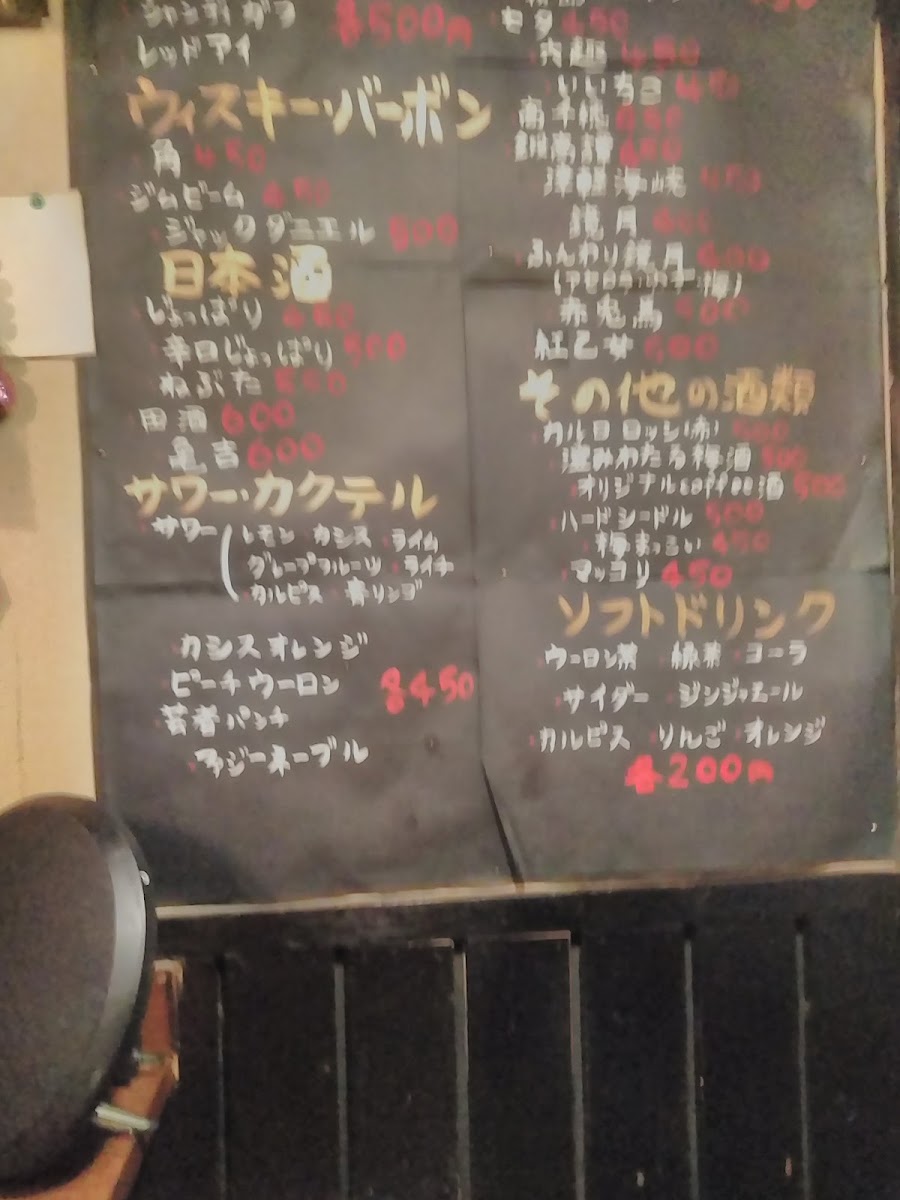 シャンディガフ 各500円
レッドアイ
ウィスキー・バーボン
角 450
ジムビーム 450
ジャックダニエル 500
日本酒
じょっぱり 450
辛口じょっぱり 500
ねぶた 550
田酒 600
亀吉 600
サワー・カクテル
サワー レモン カシス ライム
グレープフルーツ ライチ
カルピス 青リンゴ
カシスオレンジ
ピーチウーロン 各450
若者パンチ
ファジーネーブル
450
450
いいちこ 450
高千穂
津軽海峡 450
鏡月 600
ふんわり鏡月 600
赤兎馬 500
紅乙女 500
その他の酒類
カルロロッシ(赤) 500
澄みわたる梅酒 500
オリジナルcoffee酒 500
ハードシードル 500
梅まっこい 450
マッコリ 450
ソフトドリンク
ウーロン茶 緑茶 コーラ
サイダー ジンジャエール
カルピス りんご オレンジ
各200円